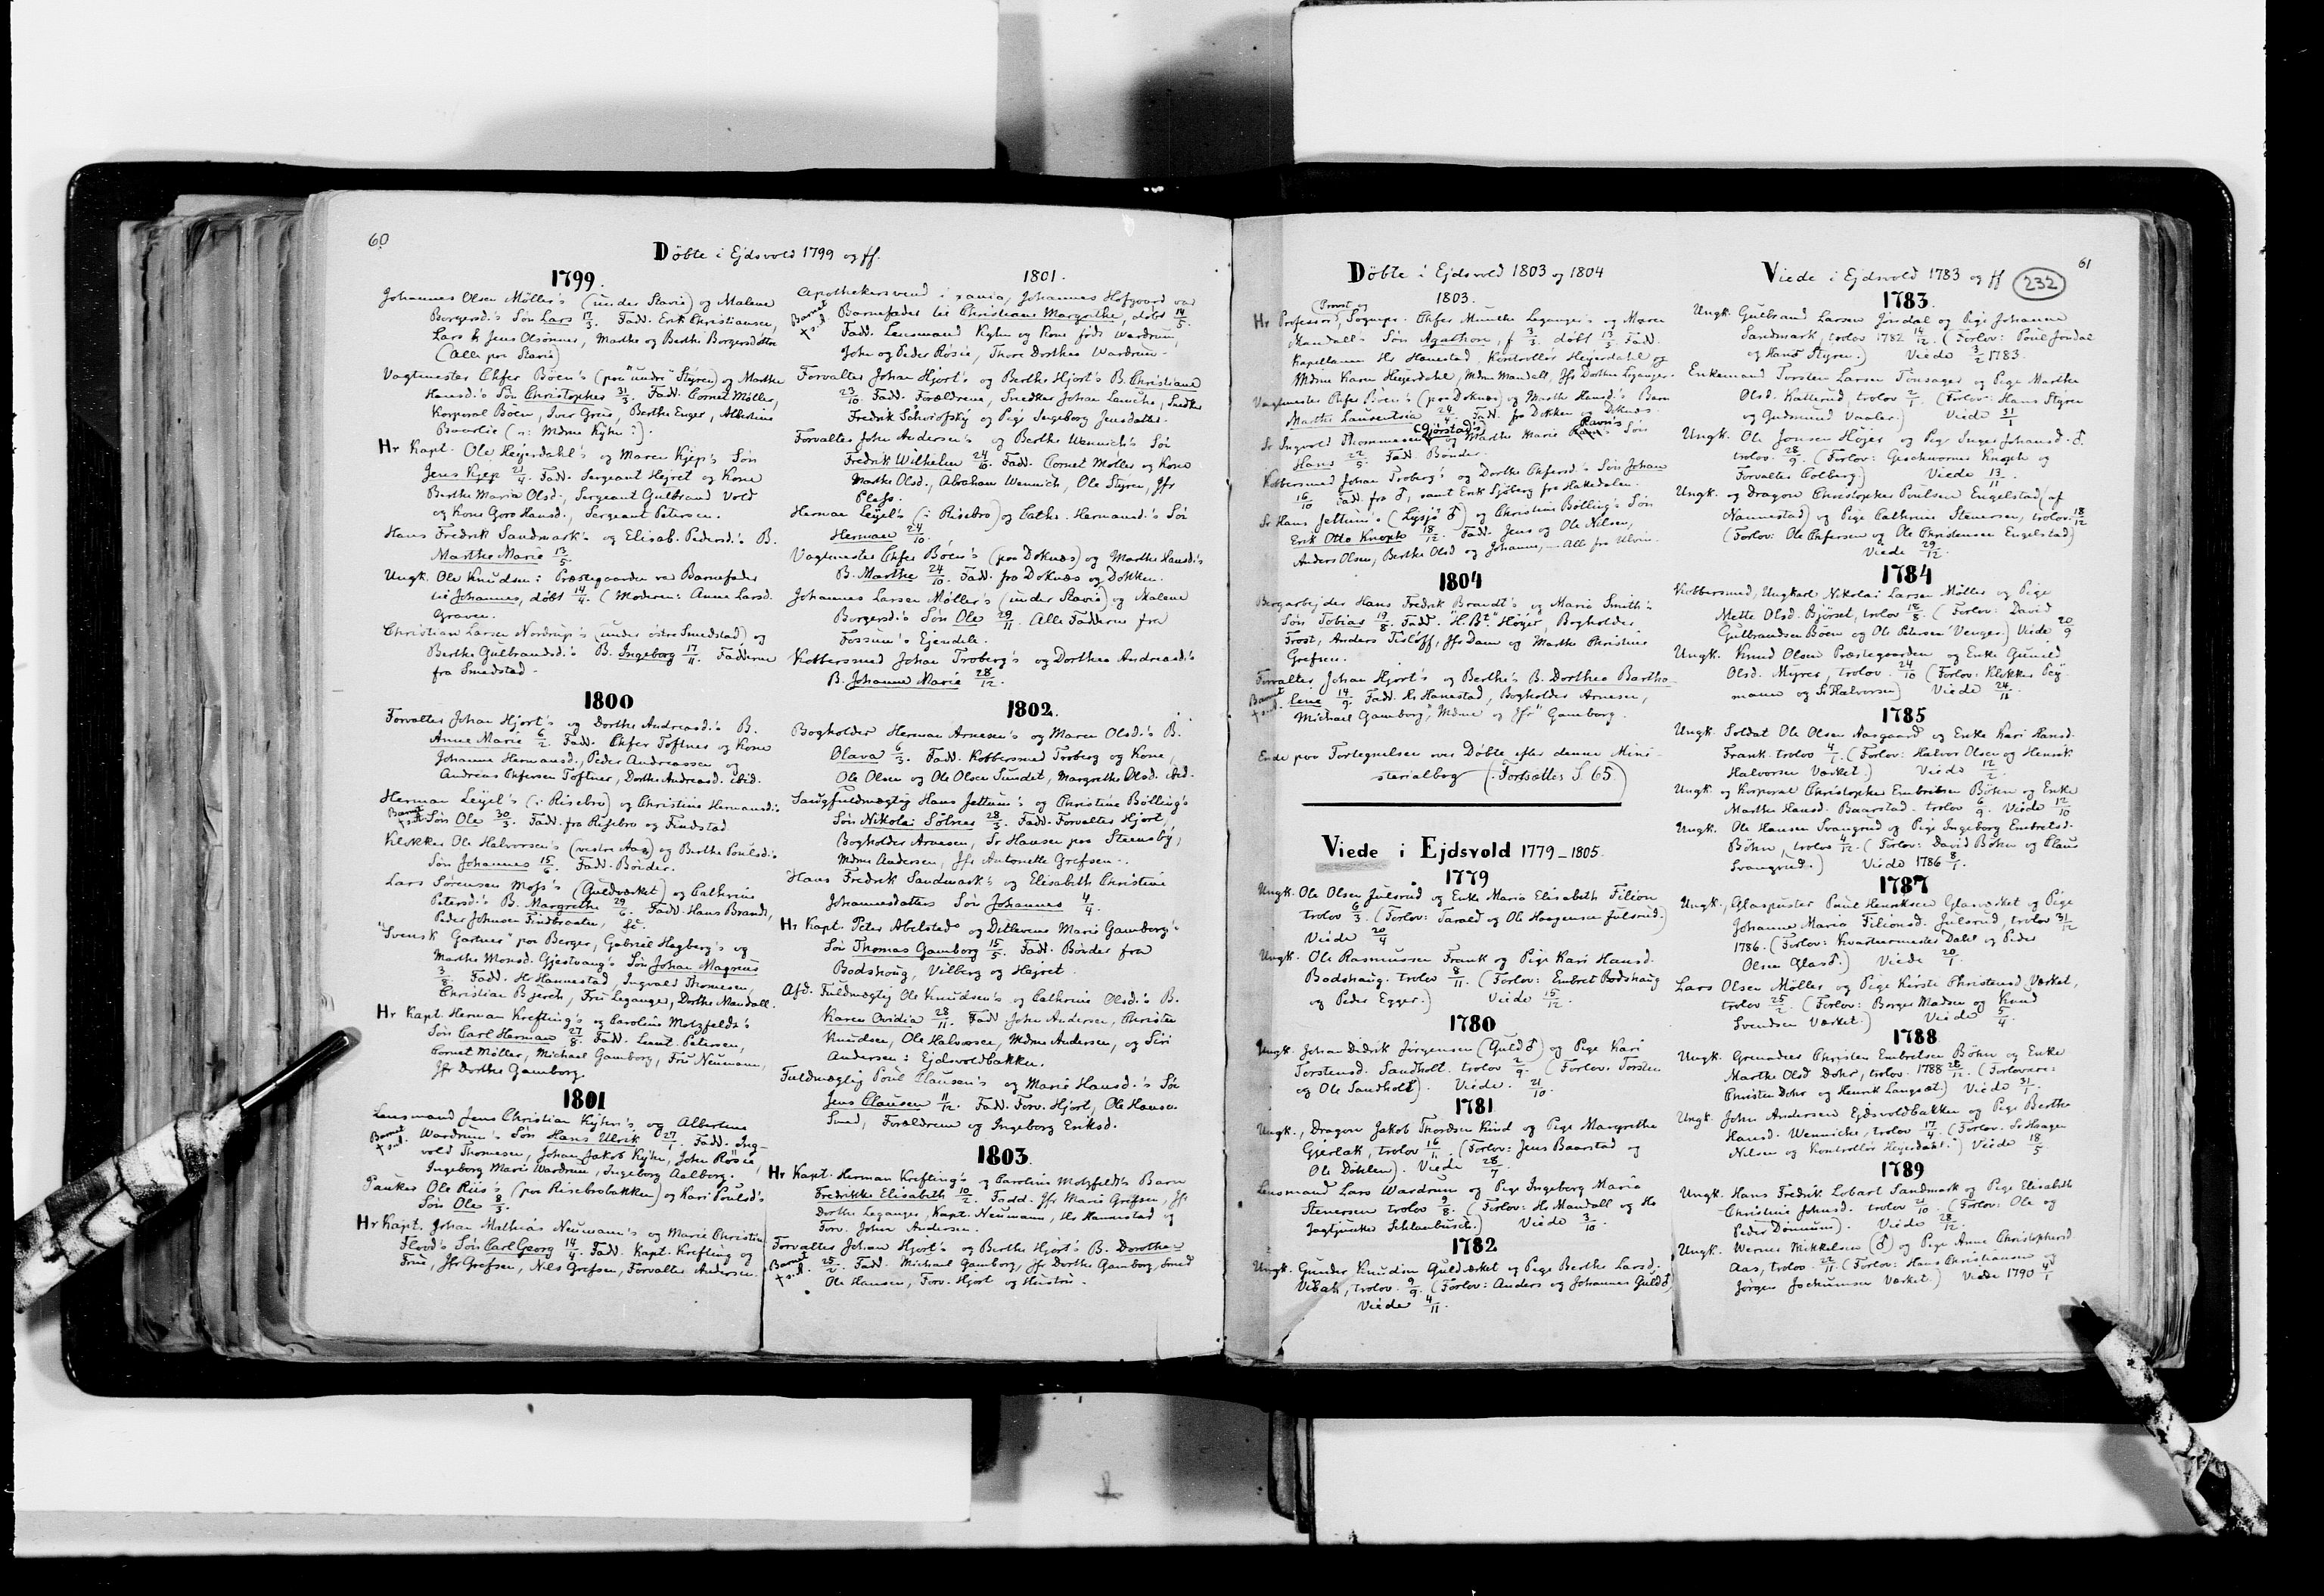 60
Döbte i Ejdsvold 1799 og ff.
1799.
Johannes Olsen Møller's (under Stavie) og Malene
Borgersd.'s Søn Lars 17/3. Fadd. Erik Christiansen,
Lars & Jens Olsønner, Marthe og Berthe Borgersdøttre
(Alle paa Stavie)
Vagtmester Chfer Böen's (paa "under" Styren) og Marthe
Hansd.'s Søn Christopher 31/3. Fadd. Cornet Møller,
Korporal Böen, Iver Greis, Berthe Enger, Albertine
Baarlie (ɔ: Mdme Kyhn :).
Hr Kapt. Ole Heyerdahl's og Maren Kjep's Søn
Jens Kjep 21/4. Fadd. Sergeant Hejret og Kone
Berthe Maria Olsd., Sergeant Gulbrand Vold
og Kone Goro Hansd., Sergeant Petersen.
Hans Fredrik Sandmark's og Elisab. Pedersd.'s B.
Marthe Marie 13/5.
Ungk. Ole Knudsen i Præstegaarden var Barnefader
til Johannes, döbt 14/4. (Moderen: Anne Larsd.
Graven.
Christian Larsen Nordrup's (under østre Smedstad) og
Berthe Gulbrandsd.'s B. Ingeborg 17/11. Fadderne
fra Smedstad.
1800
Forvalter Johan Hjort's og Dorthe Andreasd.'s B.
Anne Marie 6/2. Fadd. Chfer Toftner og Kone
Johanne Hermansd., Peder Andreassen og
Andreas Chfersen Toftner, Dorthe Andreasd. ibid.
Herman Leyel's (i Risebro) og Christine Hermansd.'s
Barnet
+ s.d.
Søn Ole 30/3. Fadd. fra Risebro og Findstad
Klokker Ole Halvorsen's (vestre Aas) og Berthe Poulsd.'s
Søn Johannes 15/6. Fadd. Bönder.
Lars Sørensen Moss's (Guldværket) og Cathrine
Petersd.'s B. Margrethe 29/6. Fadd. Hans Brandt,
Peder Johnsen Findbraaten, &c.
"Svensk Gartner" paa Berger, Gabriel Hagberg's og
Marthe Monsd. Gjestvang's Søn Johan Magnus
3/8. Fadd. Hr Hannestad, Ingvald Thomesen,
Christian Bjerck, Fru Leganger, Dorthe Mandall.
Hr Kapt. Herman Krefting's og Caroline Motzfeldt's
Søn Carl Herman 27/8. Fadd. Leut. Petersen,
Cornet Møller, Michael Gamborg, Fru Neumann,
Jfr Dorthe Gamborg.
1801
Lensmand Jens Christian Kyhn's og Albertine
Barnet
+ s.d.
Wardrum's Søn Hans Ulrik 27/1. Fadd. Ing-
vold Thomesen, Johan Jakob Kyhn, John Røsie,
Ingeborg Marie Wardrum, Ingeborg Aalborg.
Pauker Ole Riis's (paa Risebrobakken) og Kari Poulsd's
Søn Ole 8/3.
Hr Kapt. Johan Mathias Neumann's og Marie Christine
Flood's Søn Carl Georg 14/4. Fadd. Kapt. Krefting og
Frue, Jfr Grefsen, Nils Grefsen, Forvalter Andersen.
1801.
Apothekersvend i xania, Johannes Hofgaard var
Barnet
+ s.d.
Barnefader til Christiane Margrethe, døbt 14/5.
Fadd. Lensmand Kyhn og Kone født Wardrum,
John og Peder Røsie, Thore Dorthea Wardrum.
Forvalter Johan Hjort's og Berthe Hjort's B. Christiane
23/10 Fadd. Forældrene, Snedker Johan Lemche, Snedker
Fredrik Schviofsky og Pige Ingeborg Jensdatter.
Forvalter John Andersen's og Berthe Wennich's Søn
Fredrik Wilhelm 24/10. Fadd. Cornet Møller og Kone
Marthe Olsd., Abraham Wennich, Ole Styren, Jfr
Pless.
Herman Leyel's (i Risebro) og Cathr. Hermansd.'s Søn
Herman 24/10.
Vagtmester Chfer Böen's (paa Doknæs) og Marthe Hansd.'s
B. Marthe 24/10. Fadd. fra Doknæs og Dokken.
Johannes Larsen Møller's (under Stavie) og Malene
Borgersd.'s Søn Ole 29/11. Alle Fadderne fra
Fossum's Ejendele.
Kobbersmed Johan Troberg's og Dorthea Andreasd.'s
B. Johanne Marie 28/12.
1802.
Bogholder Herman Arnesen's og Maren Olsd.'s B.
Olava 6/3. Fadd. Kobbersmed Troberg og Kone,
Ole Olsen og Ole Olsen Sundet, Margrethe Olsd. ibid.
Saugfuldmægtig Hans Jettum's og Christine Bølling's
Søn Nikolai Sølner 28/3. Fadd. Forvalter Hjort,
Bogholder Arnesen, Sr Hansen paa Steensby,
Mdme Andersen, Jfr Antonette Grefsen.
Hans Fredrik Sandmark's og Elisabeth Christine
Johannesdatters Søn Johannes 4/4.
Hr Kapt. Peter Abelsted's og Ditlevine Marie Gamborg's
Søn Thomas Gamborg 15/5. Fadd. Bønder fra
Bodshaug, Vilberg og Hejret.
Afd. Fuldmægtig Ole Knudsen's og Cathrine Olsd.'s B.
Karen Ovidia 28/11. Fadd. John Andersen, Christen
Knudsen, Ole Halvorsen, Mdme Andersen, og Siri
Andersen i Ejdsvoldbakken.
Fuldmægtig Poul Clausen's og Marie Hansd.'s Søn
Jens Clausen 11/12. Fadd. Forv. Hjort, Ole Hansen
Smed, Forældrene og Ingeborg Eriksd.
1803
Hr Kapt. Herman Krefting's og Caroline Motzfeldt's Barn
Fredrikke Elisabeth 10/2. Fadd. Jfr Marie Grefsen, Jfr
Dorthe Leganger, Kapt. Neumann, Hr Hannestad og
Forv. John Andersen.
Forvalter Johan Hjort's og Berthe Hjort's B. Dorthea
Barnet
+ s.d.
25/2. Fadd. Michael Gamborg, Jfr Dorthe Gamborg, Smed
Ole Hansen, Forv. Hjort og Hustru.
Döbte i Ejdsvold 1803 og 1804
1803.
(Provst og
Hr Professor, Sognepr. Chfer Munthe Leganger's og Maren
Mandall's Søn Agathon, f 3/3 døbt 13/3 Fadd.
Kapellanen Hr Hanestad, Kontrollør Heyerdahl og
Mdme Karen Heyerdahl, Mdme Mandall, Jfr Dorthea Leganger.
Vagtmester Chfer Böen's (paa Doknæs) og Marthe Hansd.'s Barn
Marthe Laurentsia 24/4. Fadd. fra Dokken og Doknæs.
Sr Ingvold Thommesen (Gjørstad's) og Marthe Marie Ravn's Søn
Hans 22/5. Fadd. Bønder.
Kobbersmed Johan Troberg's og Dorthe Chfersd.'s Søn Johan
16/10 Fadd. fra ♂, samt Erik Sjöberg fra Hakedalen.
Sr Hans Jettum's (Lysjø ♂) og Christine Bölling's Søn
Erik Otto Knoph 18/12. Fadd. Jens og Ole Nilsen,
Anders Olsen, Berthe Olsd og Johanne, — Alle fra Ulvin.
1804
Bergarbejder Hans Fredrik Brandt's og Marie Smith's
Søn Tobias 19/8. Fadd. "H. Bt." Höyer, Bogholder
Frost, Anders Tisløff, Jfr Dam og Marthe Christine
Grefsen.
Forvalter Johan Hjort's og Berthe's B. Dorthea Bartho-
Barnet
+ s.d.
line 14/9. Fadd. Hr Hanestad, Bogholder Arnesen,
Michael Gamborg, "Mdme og Jfr" Gamborg.
Ende paa Fortegnelsen over Døbte efter denne Mini-
sterialbog (Fortsættes S. 65.)
Viede i Ejdsvold 1779–1805.
1779
Ungk. Ole Olsen Julsrud og Enke Maria Elisabeth Filion
trolov 6/3. (Forlov: Tarald og Ole Haagensen Julsrud.)
Viede 20/4
Ungk. Ole Rasmussen Frank og Pige Kari Hansd.
Bodshaug. trolov 8/11. (Forlov: Embret Bodshaug
og Peder Egger.) Viede 15/12.
1780
Ungk. Johan Didrik Jørgensen (Guld ♂) og Pige Kari
Torstensd. Sandholt. trolov 2/9. (Forlov. Torsten
og Ole Sandholt). Viede. 21/10.
1781
Ungk., Dragon Jakob Thordsen Rind og Pige Margrethe
Gjerlak, trolov 16/1. (Forlov: Jens Baarstad og
Ole Döhlen). Viede 28/7.
Lensmand Lars Wardrum og Pige Ingeborg Maria
Stenersen trolov 9/8. (Forlov: Hr Mandall og Hr
Jagtjunker Schlanbusch.) Viede 3/10.
1782
Ungk. Gunder Knudsen Guldværket og Pige Berthe Larsd.
Vibak, trolov. 9/9. (Forlov: Anders og Johannes Guld ♂)
Viede 4/11.
Viede i Ejdsvold 1783 og ff
232
61
1783.
Ungk. Gulbrand Larsen Jøndal og Pige Johanne
Sandmark, trolov 1782 14/12. (Forlov: Poul Jøndal
og Hans Styren.) Viede 3/2 1783.
Enkemand Torsten Larsen Tönsager og Pige Marthe
Olsd. Katterud, trolov 2/1. (Forlov: Hans Styren
og Gudmund Vaaler.) Viede 31/1
Ungk. Ole Jonsen Höjer og Pige Inger Johansd. ♂.
trolov. 28/9. (Forlov: Geschworner Knoph og
Forvalter Colberg.) Viede 13/11.
Ungk. og Dragon Christopher Poulsen Engelstad (af
Nannestad) og Pige Cathrine Stenersen, trolov. 18/12
(Forlov: Ole Chfersen og Ole Christensen Engelstad)
Viede 29/12.
1784
Kobbersmed, Ungkarl Nikolai Larsen Møller og Pige
Mette Olsd. Bjørset, trolov 18/8. (Forlov: David
Gulbrandsen Böen og Ole Petersen Venger.) Viede 20/9
Ungk. Knud Olsen Præstegaarden og Enke Gunild
Olsd. Myrer, trolov. 24/10 (Forlov: Klokker Peÿ
mann og Sr Halvorsen) Viede 24/11.
1785
Ungk. Soldat Ole Olsen Aasgaard og Enke Kari Hansd.
Frank trolov 4/1. (Forlov: Halvor Olsen og Henrik
Halvorsen Værket.) Viede 12/2.
Ungk. og Korporal Christopher Embretsen Böhn og Enke
Marthe Hansd. Baarstad. trolov 6/9. Viede 12/10
Ungk. Ole Hansen Svangrud og Pige Ingeborg Embretsd.
Böhn, trolov 4/12. (Forlov: David Böhn og Claus
Svangrud.) Viede 1786 8/1.
1787
Ungk., Glaspuster Poul Henriksen Glasværket og Pige
Johanne Maria Filionsd. Julsrud, trolov 31/12
1786. (Forlov: Kvartermester Dahl og Peder
Olsen Glas ♂.) Viede 20/1.
Lars Olsen Møller og Pige Kirste Christensd Værket,
trolov 25/2. (Forlov: Borger Madsen og Knud
Svendsen Værket.) Viede 5/4.
1788
Ungk. Grenader Christen Embretsen Böhn og Enke
Marthe Olsd Dohr, trolov. 1788 28/12. (Forlovere:
Christen Dohr og Henrik Langset.) Viede 31/1.
Ungk. John Andersen Ejdsvoldbakken og Pige Berthe
Hansd. Wennicke, trolov 17/4. (Forlov. Sr Haagen
Nilsen og Kontrollør Heyerdahl.) Viede 18/5
1789
Ungk. Hans Fredrik Lobart Sandmark og Pige Elisabeth
Christine Johnsd. trolov 21/10. (Forlov: Ole og
Peder Dönnum). Viede 28/12.
Ungk. Werner Mikkelsen (♂) og Pige Anne Christophersd.
Aas, trolov. 22/11. (Forlov: Hans Christiansen og
Jørgen Jochumsen Værket.) Viede 1790 4/1